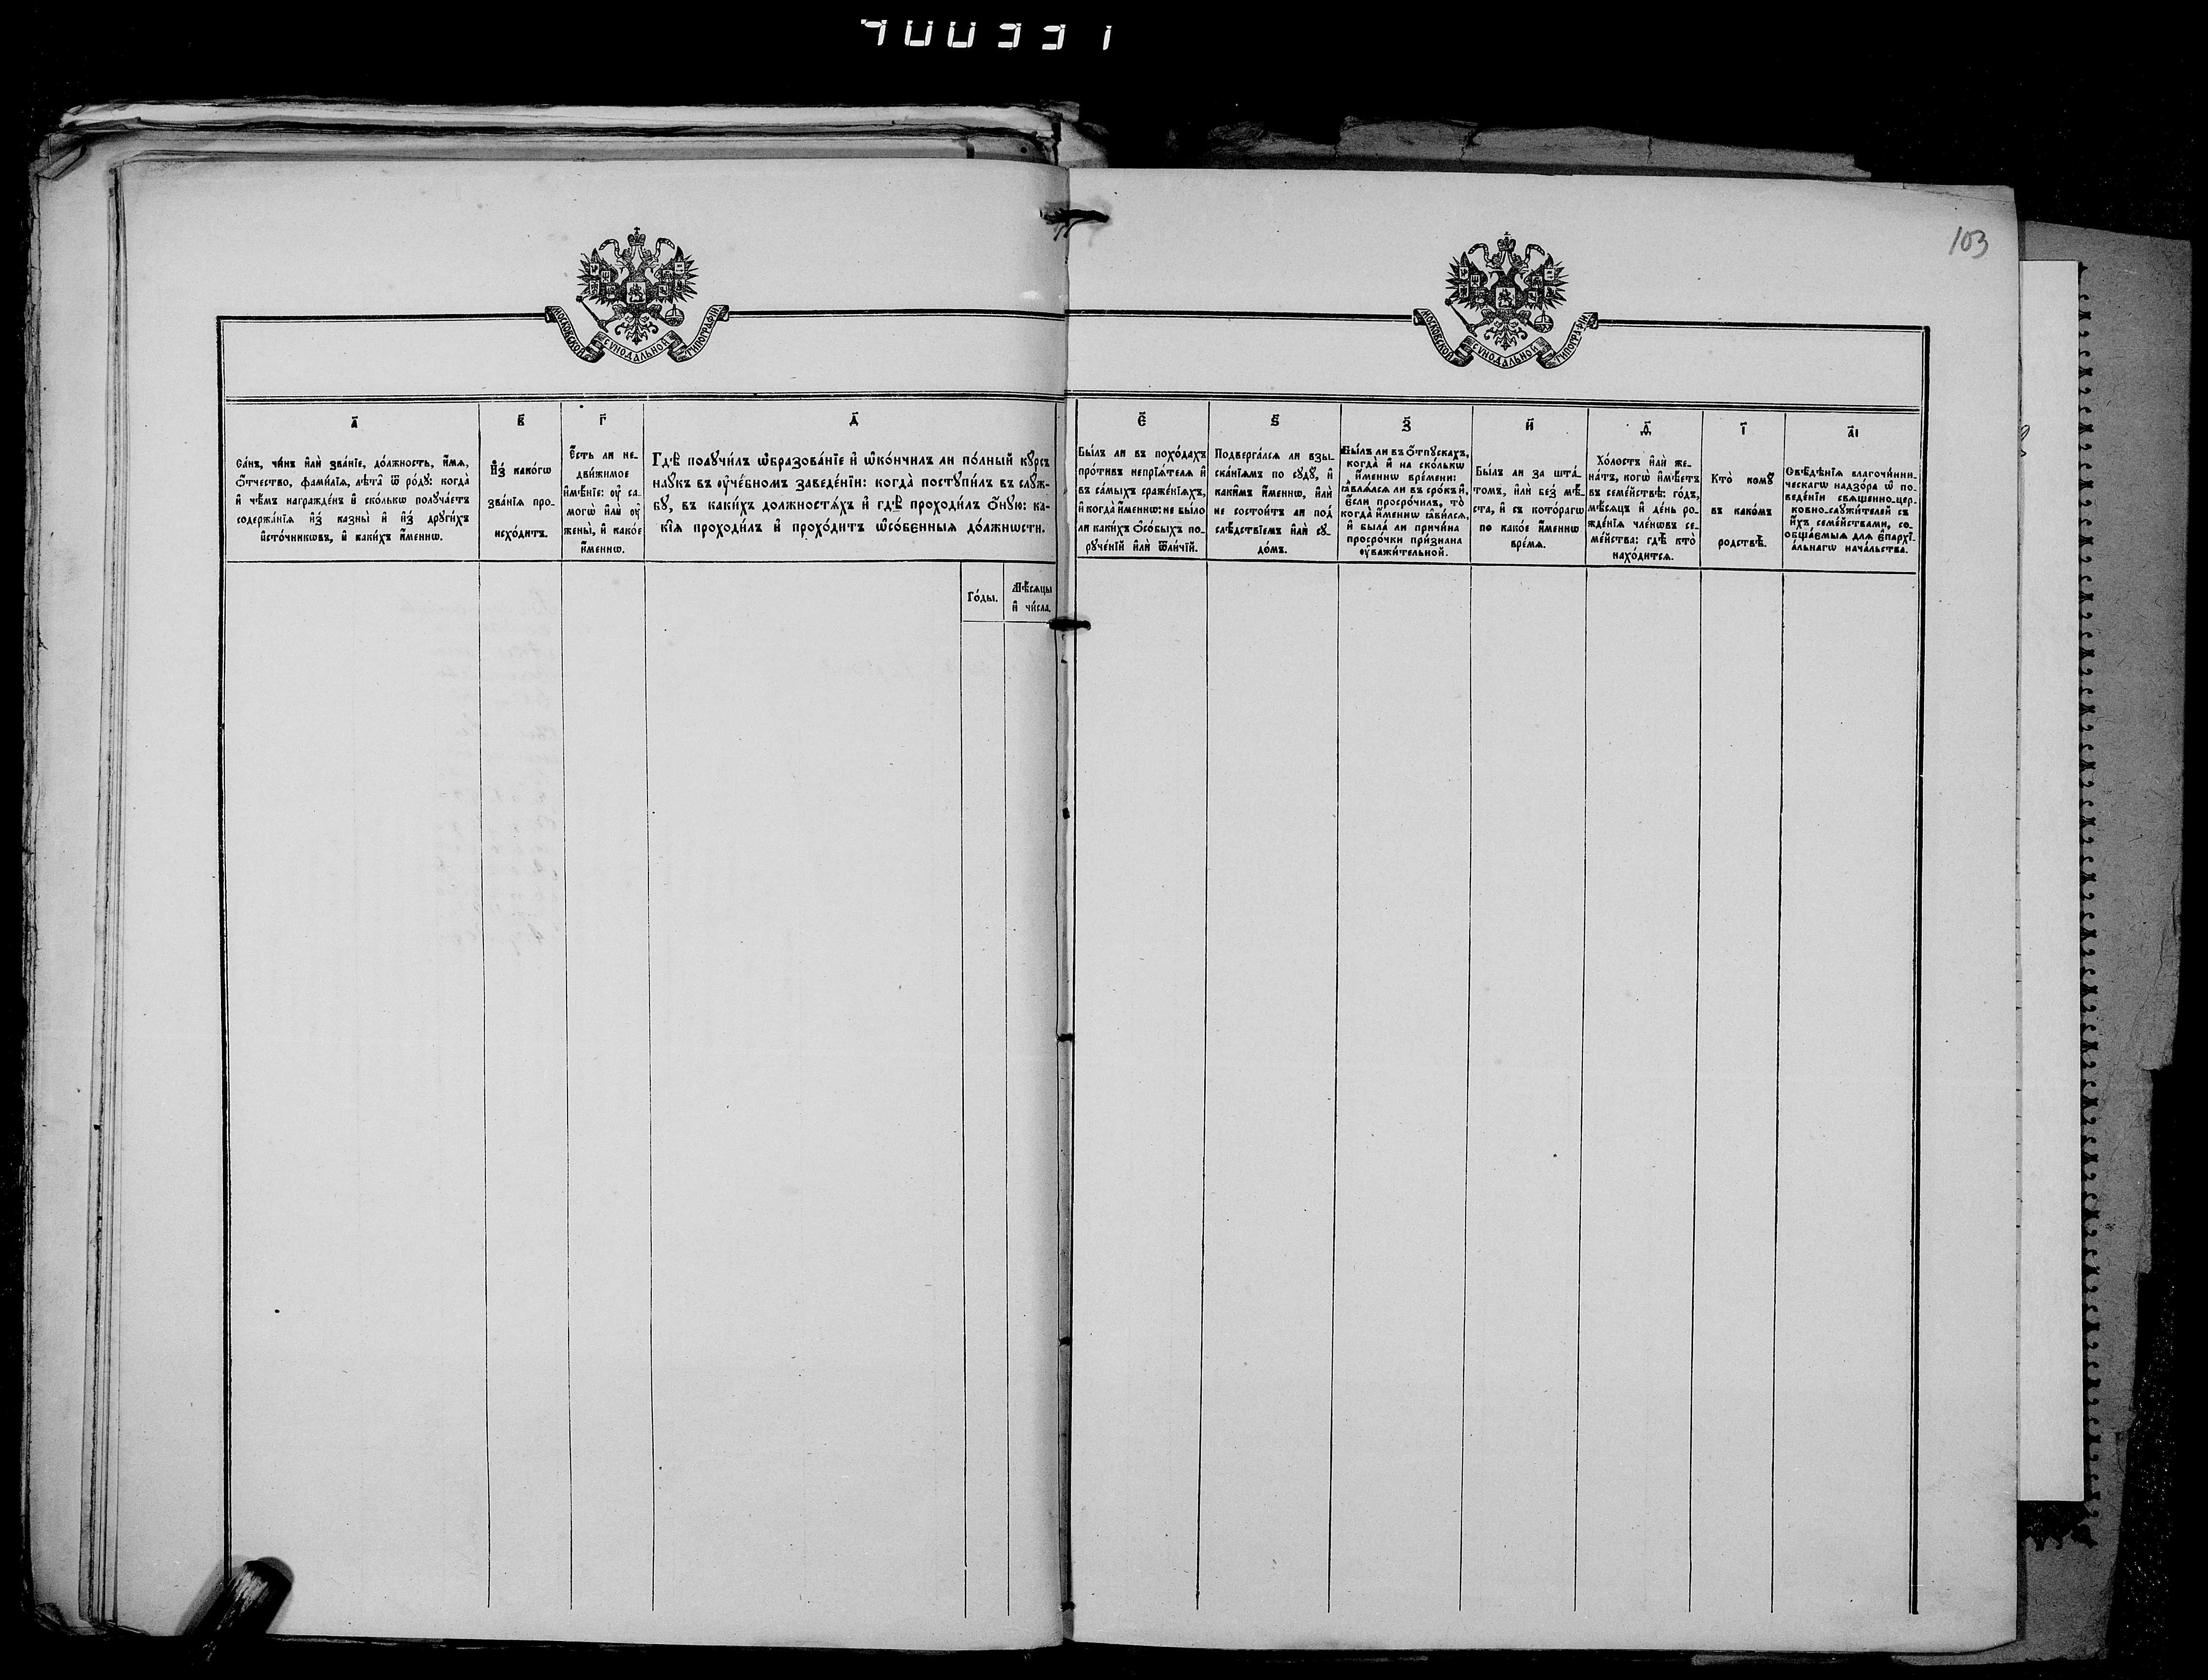 103
МОСКОВСКОЙ СУНОДАЛЬНОЙ ТИПОГРАФІИ
МОСКОВСКОЙ СУНОДАЛЬНОЙ ТИПОГРАФІИ
а҃
Са́нъ, чи́нъ и҆лѝ зва́нїе, до́лжность, и҆́мѧ,
ѻ҆́тчество, фами́лїѧ, лѣта̀ ѿ ро́дꙋ: когда̀
и҆ чѣ́мъ награжде́нъ и҆ ско́лькѡ получа́етъ
содержа́нїѧ и҆з̾ казны̀ и҆ и҆з̾ други́хъ
и҆сто́чникѡвъ, и҆ каки́хъ и҆́меннѡ.
в҃
И҆з̾ како́гѡ
зва́нїѧ про-
исхо́дитъ.
г҃
Е҆́сть ли не-
дви́жимое
и҆мѣ́нїе: ᲂу҆ са-
могѡ̀ и҆лѝ ᲂу҆
жены̀, и҆ како́е
и҆́меннѡ.
д҃
Гдѣ̀ полꙋчи́лъ ѡ҆бразова́нїе и҆ ѡ҆ко́нчилъ ли по́лный кꙋ́рсъ
наꙋ́къ въ ᲂу҆че́бномъ заведе́нїи: когда̀ постꙋпи́лъ въ слꙋ́ж-
бꙋ, въ каки́хъ должностѧ́хъ и҆ гдѣ̀ проходи́лъ ѻ҆́нꙋю: ка-
кі́ѧ проходи́лъ и҆ прохо́дитъ ѡ҆со́бенныѧ до́лжнѡсти.
Го́ды.
Мѣ́сѧцы
и҆ чи́сла.
є҃
Бы́лъ ли въ похо́дахъ
про́тивъ непрїѧ́телѧ и҆
въ са́мыхъ сраже́нїѧхъ,
и҆ когда̀ и҆́меннѡ: не бы́ло
ли каки́хъ ѻ҆со́быхъ по-
рꙋче́нїй и҆лѝ ѿли́чїй.
ѕ҃
Подверга́лсѧ ли взы-
ска́нїѧмъ по сꙋдꙋ̀, и҆
каки́мъ и҆́меннѡ, и҆лѝ
не состои́тъ ли под̾
слѣ́дствїемъ и҆лѝ сꙋ-
до́мъ.
з҃
Бы́лъ ли въ ѻ҆́тпꙋскахъ,
когда̀ и҆ на ско́лькѡ
и҆́меннѡ вре́мени:
ꙗ҆влѧ́лсѧ ли въ сро́къ и҆,
е҆́сли просро́чилъ, то̀
когда̀ и҆́меннѡ ꙗ҆ви́лсѧ,
и҆ была̀ ли причи́на
просро́чки при́знана
ᲂу҆важи́тельной.
и҃
Бы́лъ ли за шта́-
томъ, и҆лѝ без̾ мѣ́-
ста, и҆ съ кото́рагѡ
по како́е и҆́меннѡ
вре́мѧ.
ѳ҃
Хо́лостъ и҆лѝ же-
на́тъ, когѡ̀ и҆мѣ́етъ
въ семе́йствѣ: го́дъ,
мѣ́сѧцъ и҆ де́нь ро-
жде́нїѧ чле́нѡвъ се-
ме́йства: гдѣ̀ кто̀
нахо́дитсѧ.
і҃
Кто̀ комꙋ̀
въ како́мъ
родствѣ̀.
а҃і
Свѣ́дѣнїѧ благочи́нни-
ческагѡ надзо́ра ѡ҆ по-
веде́нїи свѧще́нно-цер-
ковно-слꙋжи́телей съ
и҆́хъ семе́йствами, со-
обща́емыѧ для є҆пархї-
а́льнагѡ нача́льства.